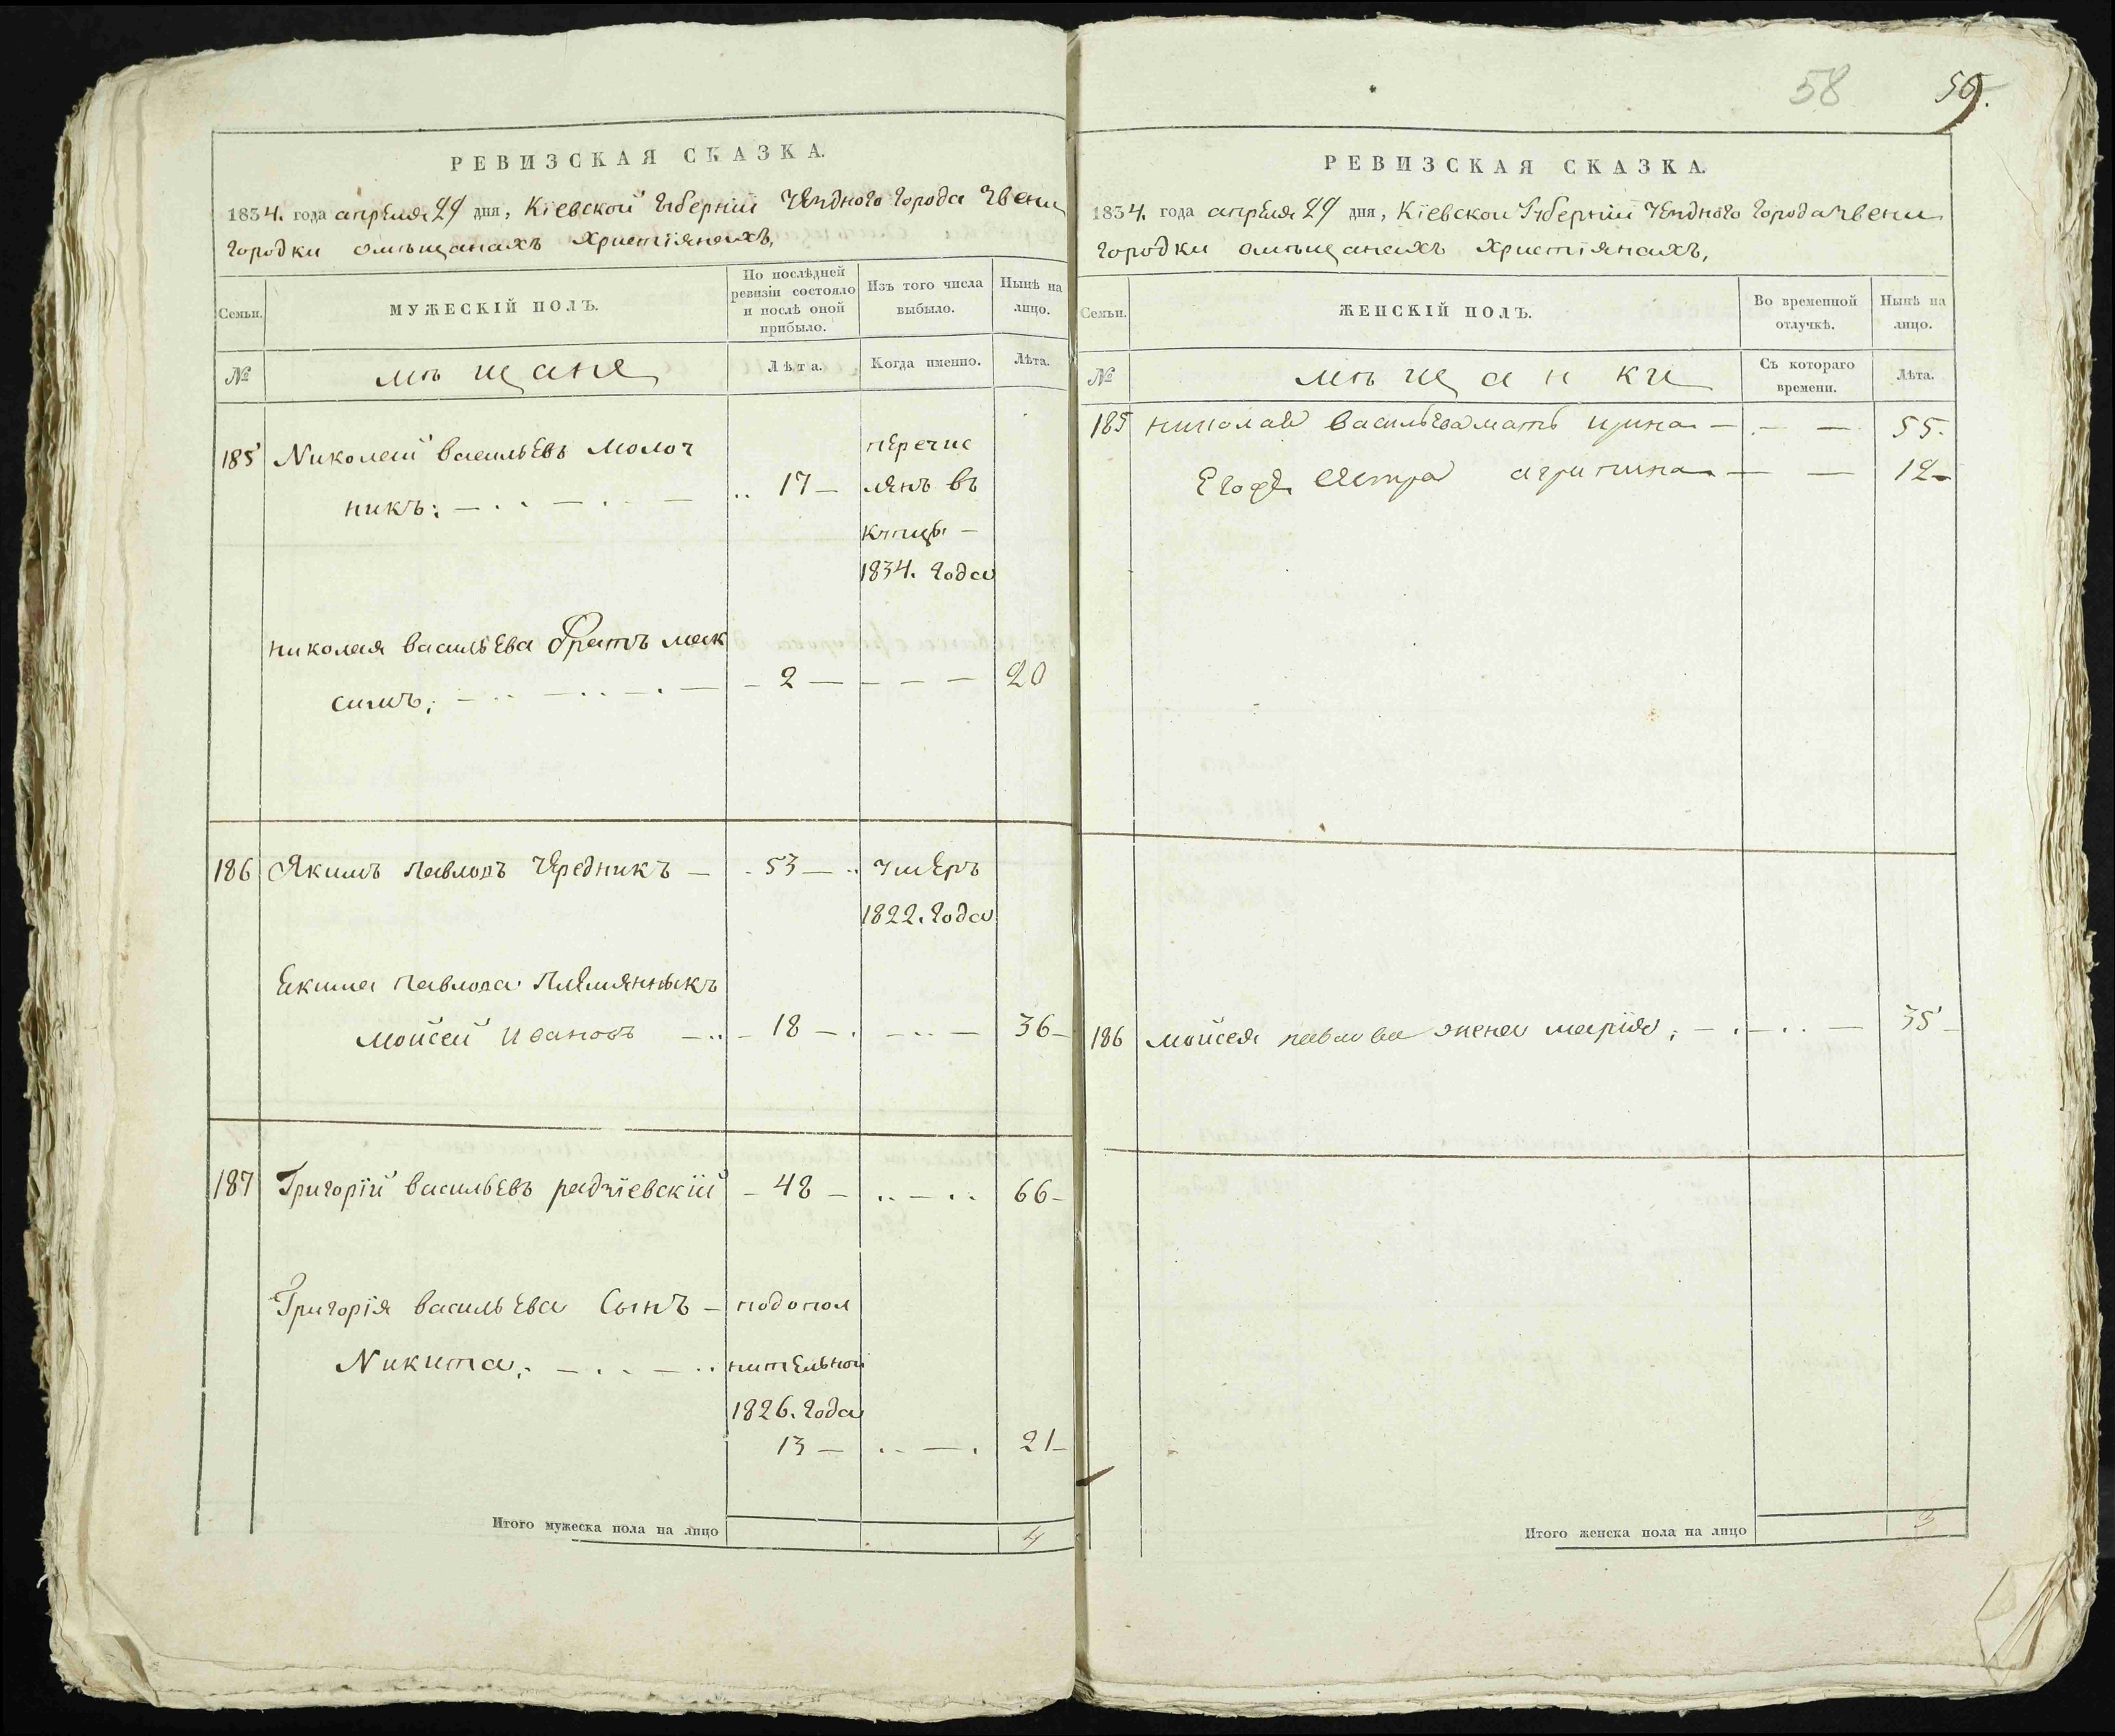 58
59.
РЕВИЗСКАЯ СКАЗКА.
1834. года апреля 29 дня, Кіевской губерніи уезднаго города звени
городки омѣщанахъ христіянахъ,
Семьи.
МУЖЕСКІЙ ПОЛЪ.
По послѣдней
ревизіи состояло
и послѣ оной
прибыло.
Изъ того числа
выбыло.
Нынѣ на
лицо.
№
мѣщане
Лѣта.
Когда именно.
Лѣта.
185 Николай васильевъ Молоч
никъ: 17
перечис
ленъ въ
купцы
1834. года
николая васильева братъ мак
симъ; 2 20
186 Якимъ павловъ Чередникъ 53 умеръ
1822. года
Екима павлова племянныкъ
мойсей Ивановъ 18 36
187 Григорій васильевъ радзіевскій 48 66
Григорія васильева сынъ подопол
Никита; нительной
1826. года
13 21
Итого мужеска пола на лицо 4
РЕВИЗСКАЯ СКАЗКА.
1834. года апреля 29 дня, Кіевской губерніи уездного города звени
городки омѣщанахъ христіянахъ,
Семьи.
ЖЕНСКІЙ ПОЛЪ.
Во временной
отлучкѣ.
Нынѣ на
лицо.
№
мѣщанки
Съ котораго
времени.
Лѣта.
185 николая васильева мать ирина 55.
Егоже сестра агрипина 12
186 мойсея павлова жена марія; 35
Итого женска пола на лицо 3